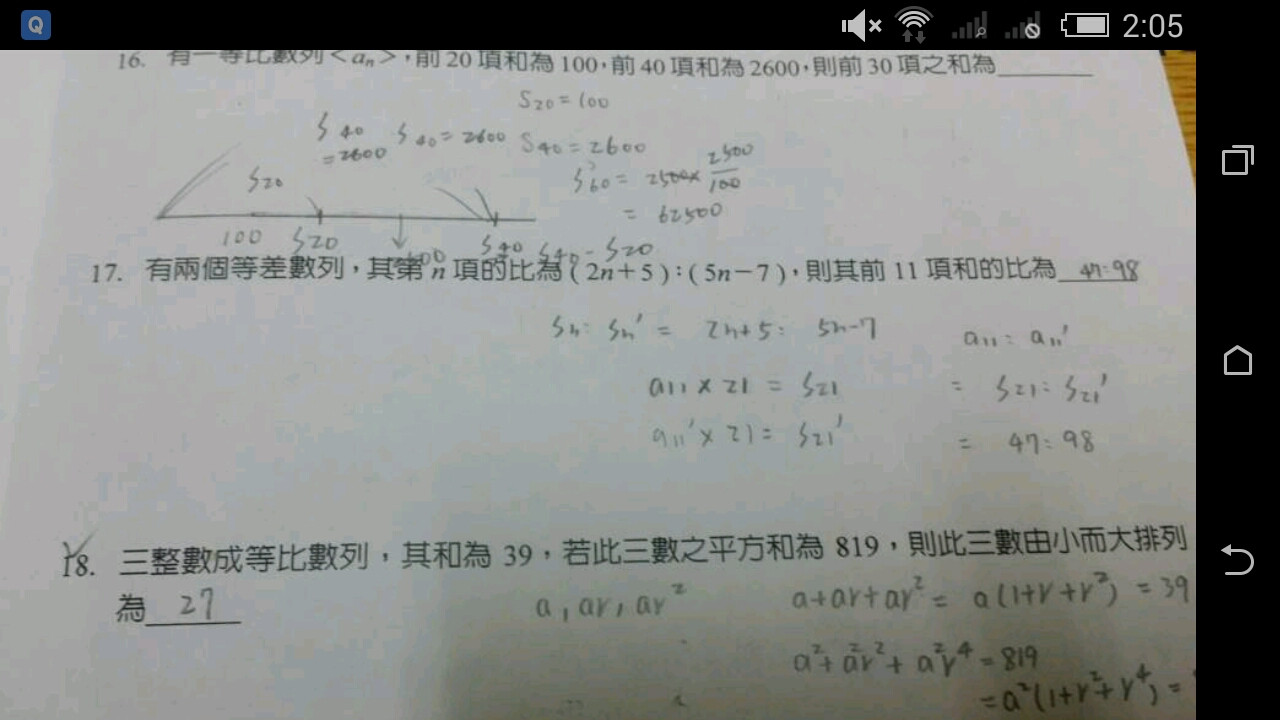 2:05
16. 有一等比數列<aₙ>,前20項和為100,前40項和為2600,則前30項之和為______
S20=100
S40=2600 S40=2600 S40=2600
S20 S60=2500×2500/100
=62500
100 S20 S40 S40-S20
17. 有兩個等差數列,其第n項的比為(2n+5):(5n-7),則其前11項和的比為 47:98
Sn:Sn'= 2n+5: 5n-7 a11:a11'
a11×21=S21 = S21:S21'
a11'×21=S21' = 47:98
18. 三整數成等比數列,其和為39,若此三數之平方和為819,則此三數由小而大排列
為 27 a,ar,ar² a+ar+ar²= a(1+r+r²)=39
a²+a²r²+a²r⁴=819
=a²(1+r²+r⁴)=